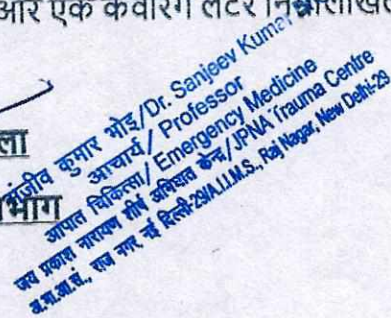 और एक कवरिंग लेटर निम्नलिखित
ला
भाग
संजीव कुमार भोइ/Dr. Sanjeev Kumar
आचार्य/ Professor
आपात चिकित्सा/ Emergency Medicine
जय प्रकाश नारायण शीर्ष अभिघात केन्द्र/JPNA Trauma Centre
अ.भा.आ.सं., राज नगर, नई दिल्ली-29/A.I.I.M.S., Raj Nagar, New Delhi-29